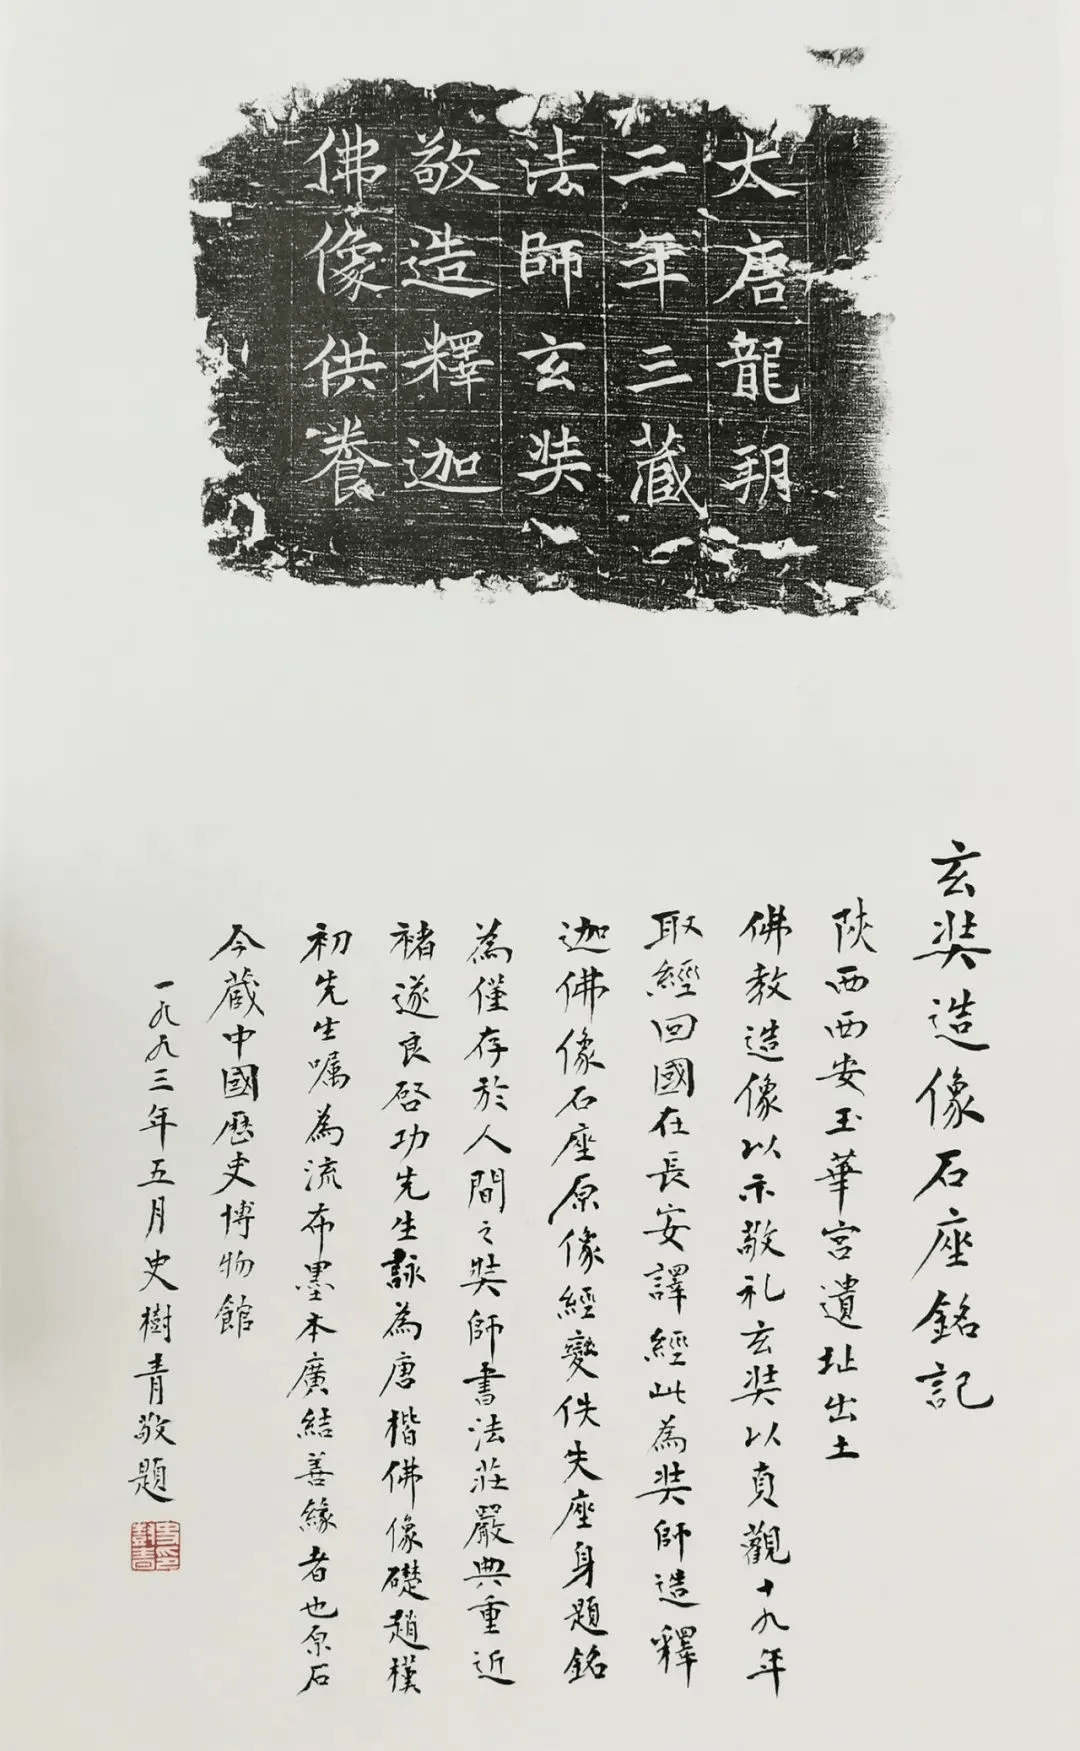 大唐龍朔
二年三藏
法師玄奘
敬造釋迦
佛像供養
玄奘造像石座銘記
陝西西安玉華宮遺址出土
佛教造像以示敬礼玄奘以貞觀十九年
取經回國在長安譯經此為奘師造釋
迦佛像石座原像經變佚失座身題銘
為僅存於人間之奘師書法莊嚴典重近
褚遂良啓功先生詠為唐楷佛像礎趙樸
初先生嘱為流布墨本廣結善緣者也原石
今藏中國歷史博物館
一九九三年五月史樹青敬題